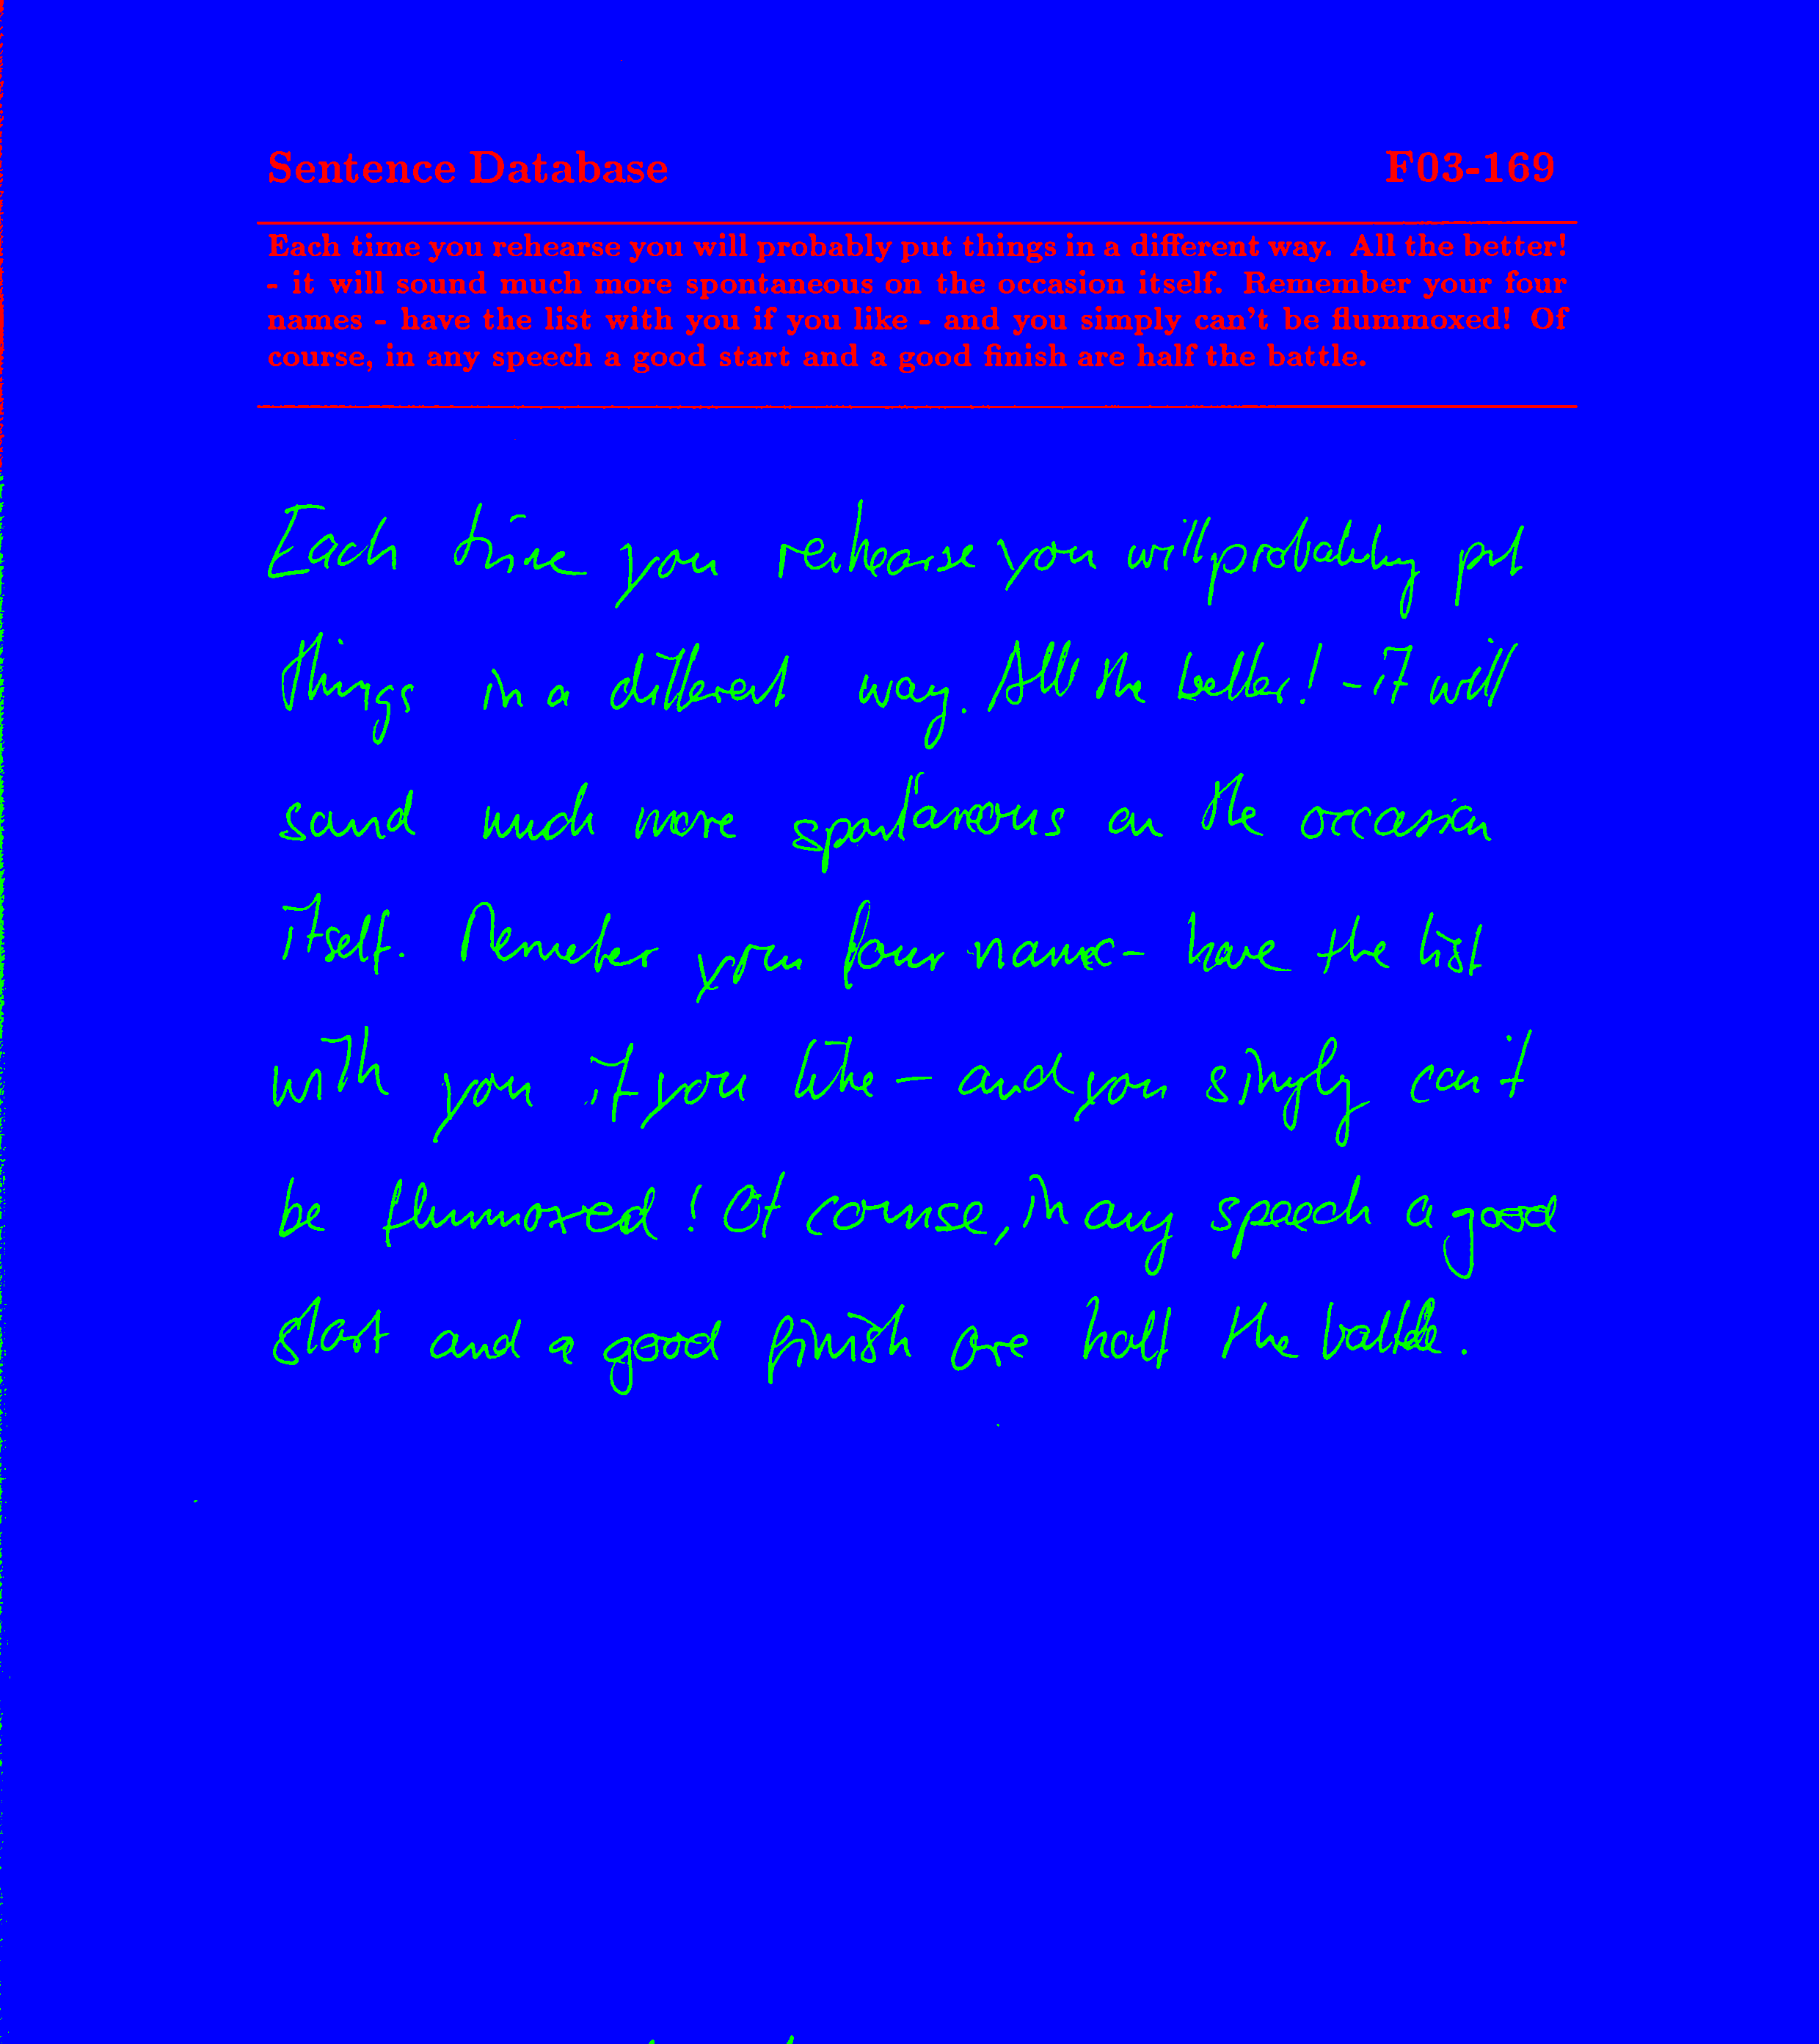 Sentence Database F03-169
Each time you rehearse you will probably put things in a different way. All the better!
- it will sound much more spontaneous on the occasion itself. Remember your four
names - have the list with you if you like - and you simply can't be flummoxed! Of
course, in any speech a good start and a good finish are half the battle.
Each time you rehearse you will probably put
things in a different way. All the better! - it will
sound much more spontaneous on the occasion
itself. Remember your four name - have the list
with you if you like - and you simply can't
be flummoxed! Of course, in any speech a good
start and a good finish are half the battle.